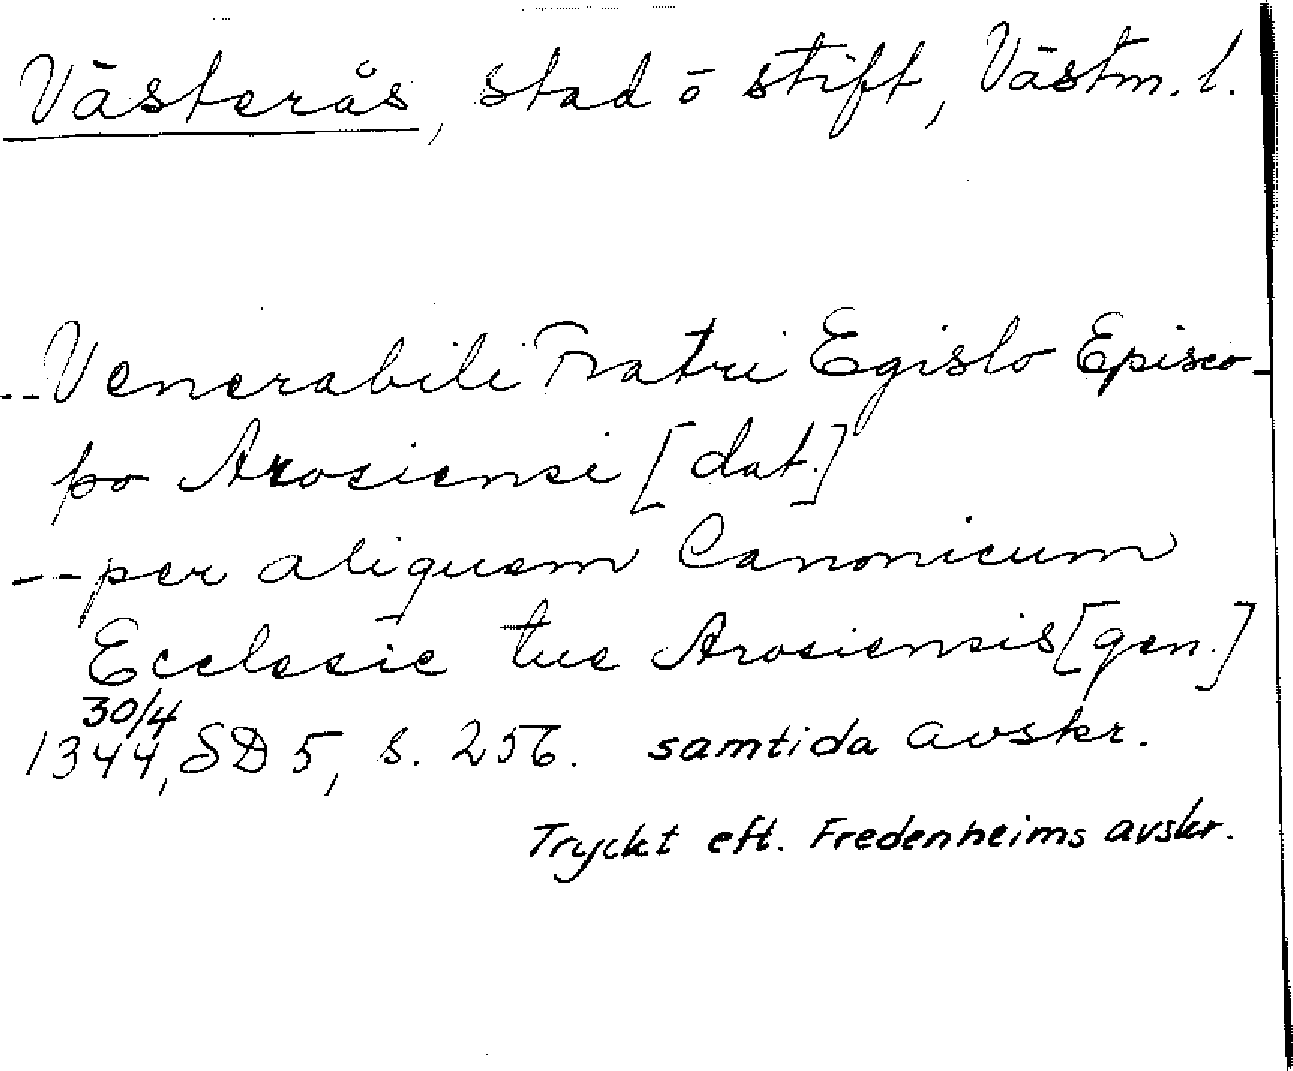 Västerås, stad o stift, Västm. l.
--Venerabili Fratri Egislo Episco-
po Arosiensi [dat.]
--per aliquem Canonicum
Ecclesie tue Arosiensis [gen.]
30/4
1344, SD 5, s. 256. samtida avskr.
Tryckt eft. Fredenheims avskr.